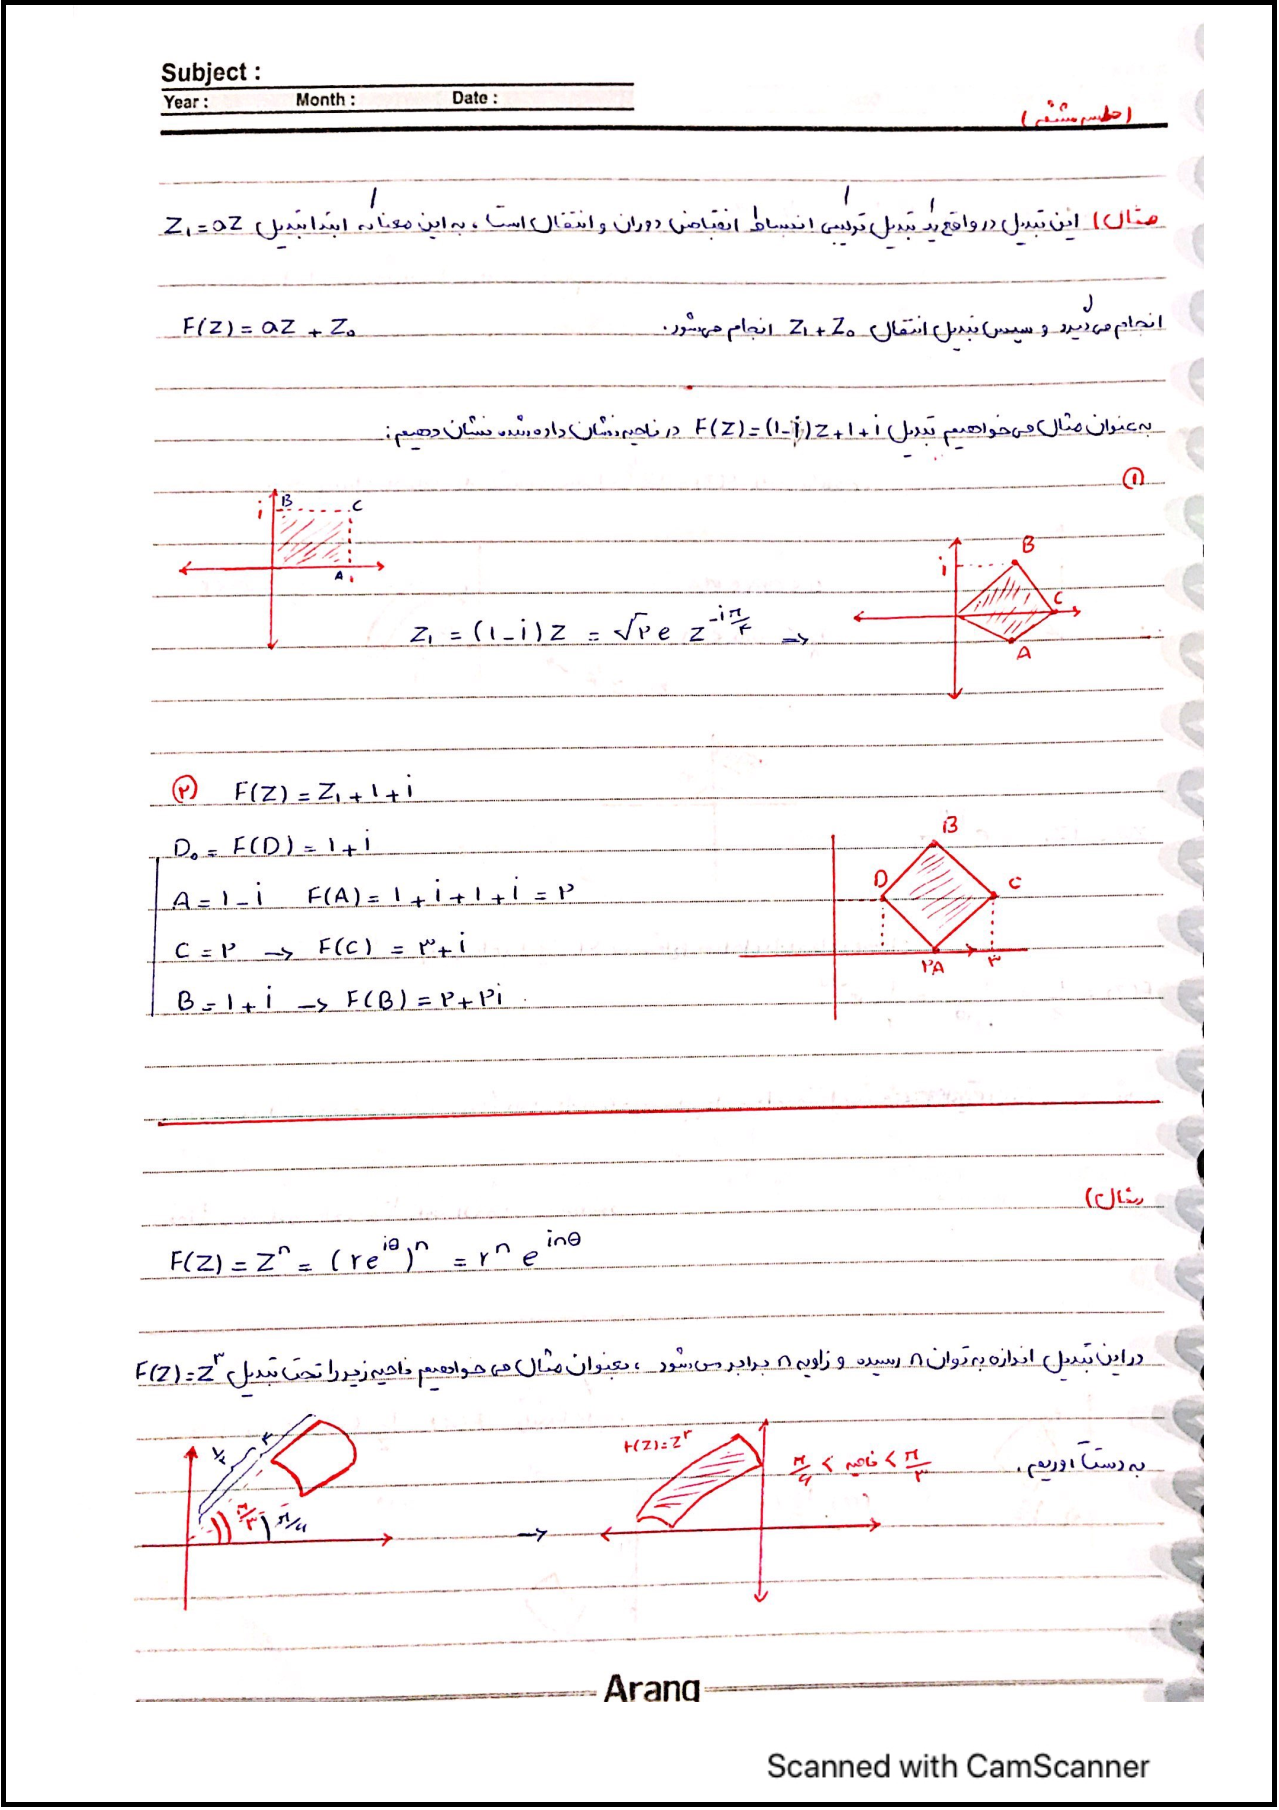 Subject :
Year : Month : Date :
(جلسه ششم)
مثال) این تبدیل در واقع یک تبدیل ترکیبی انبساط انقباض دوران و انتقال است، به این معنا که ابتدا تبدیل Z₁=aZ
انجام می‌گیرد و سپس تبدیل انتقال Z₁+Z₀ انجام می‌شود. F(Z)=aZ+Z₀
به عنوان مثال می‌خواهیم تبدیل F(Z)=(1-i)Z+1+i در ناحیه نشان داده شده نشان دهیم:
①
B C
i
A 1
B
i
C
A
Z₁ = (1-i)Z = √۲ e Z^{-iπ/۴} →
② F(Z) = Z₁+1+i
D₀ = F(D) = 1+i
A = 1-i F(A) = 1+i+1+i = ۲
C = ۲ → F(C) = ۳+i
B = 1+i → F(B) = ۲+۲i
B
D C
۲A ۳
مثال)
F(Z) = Zⁿ = (re^{iθ})ⁿ = rⁿ e^{inθ}
در این تبدیل اندازه به توان n رسیده و زاویه n برابر می‌شود، بعنوان مثال می‌خواهیم ناحیه زیر را تحت تبدیل F(Z)=Z³
به دست آوریم. π/۶ < ناحیه < π/۳
F(Z)=Z³
π/۳ π/۶
→
Arang
Scanned with CamScanner